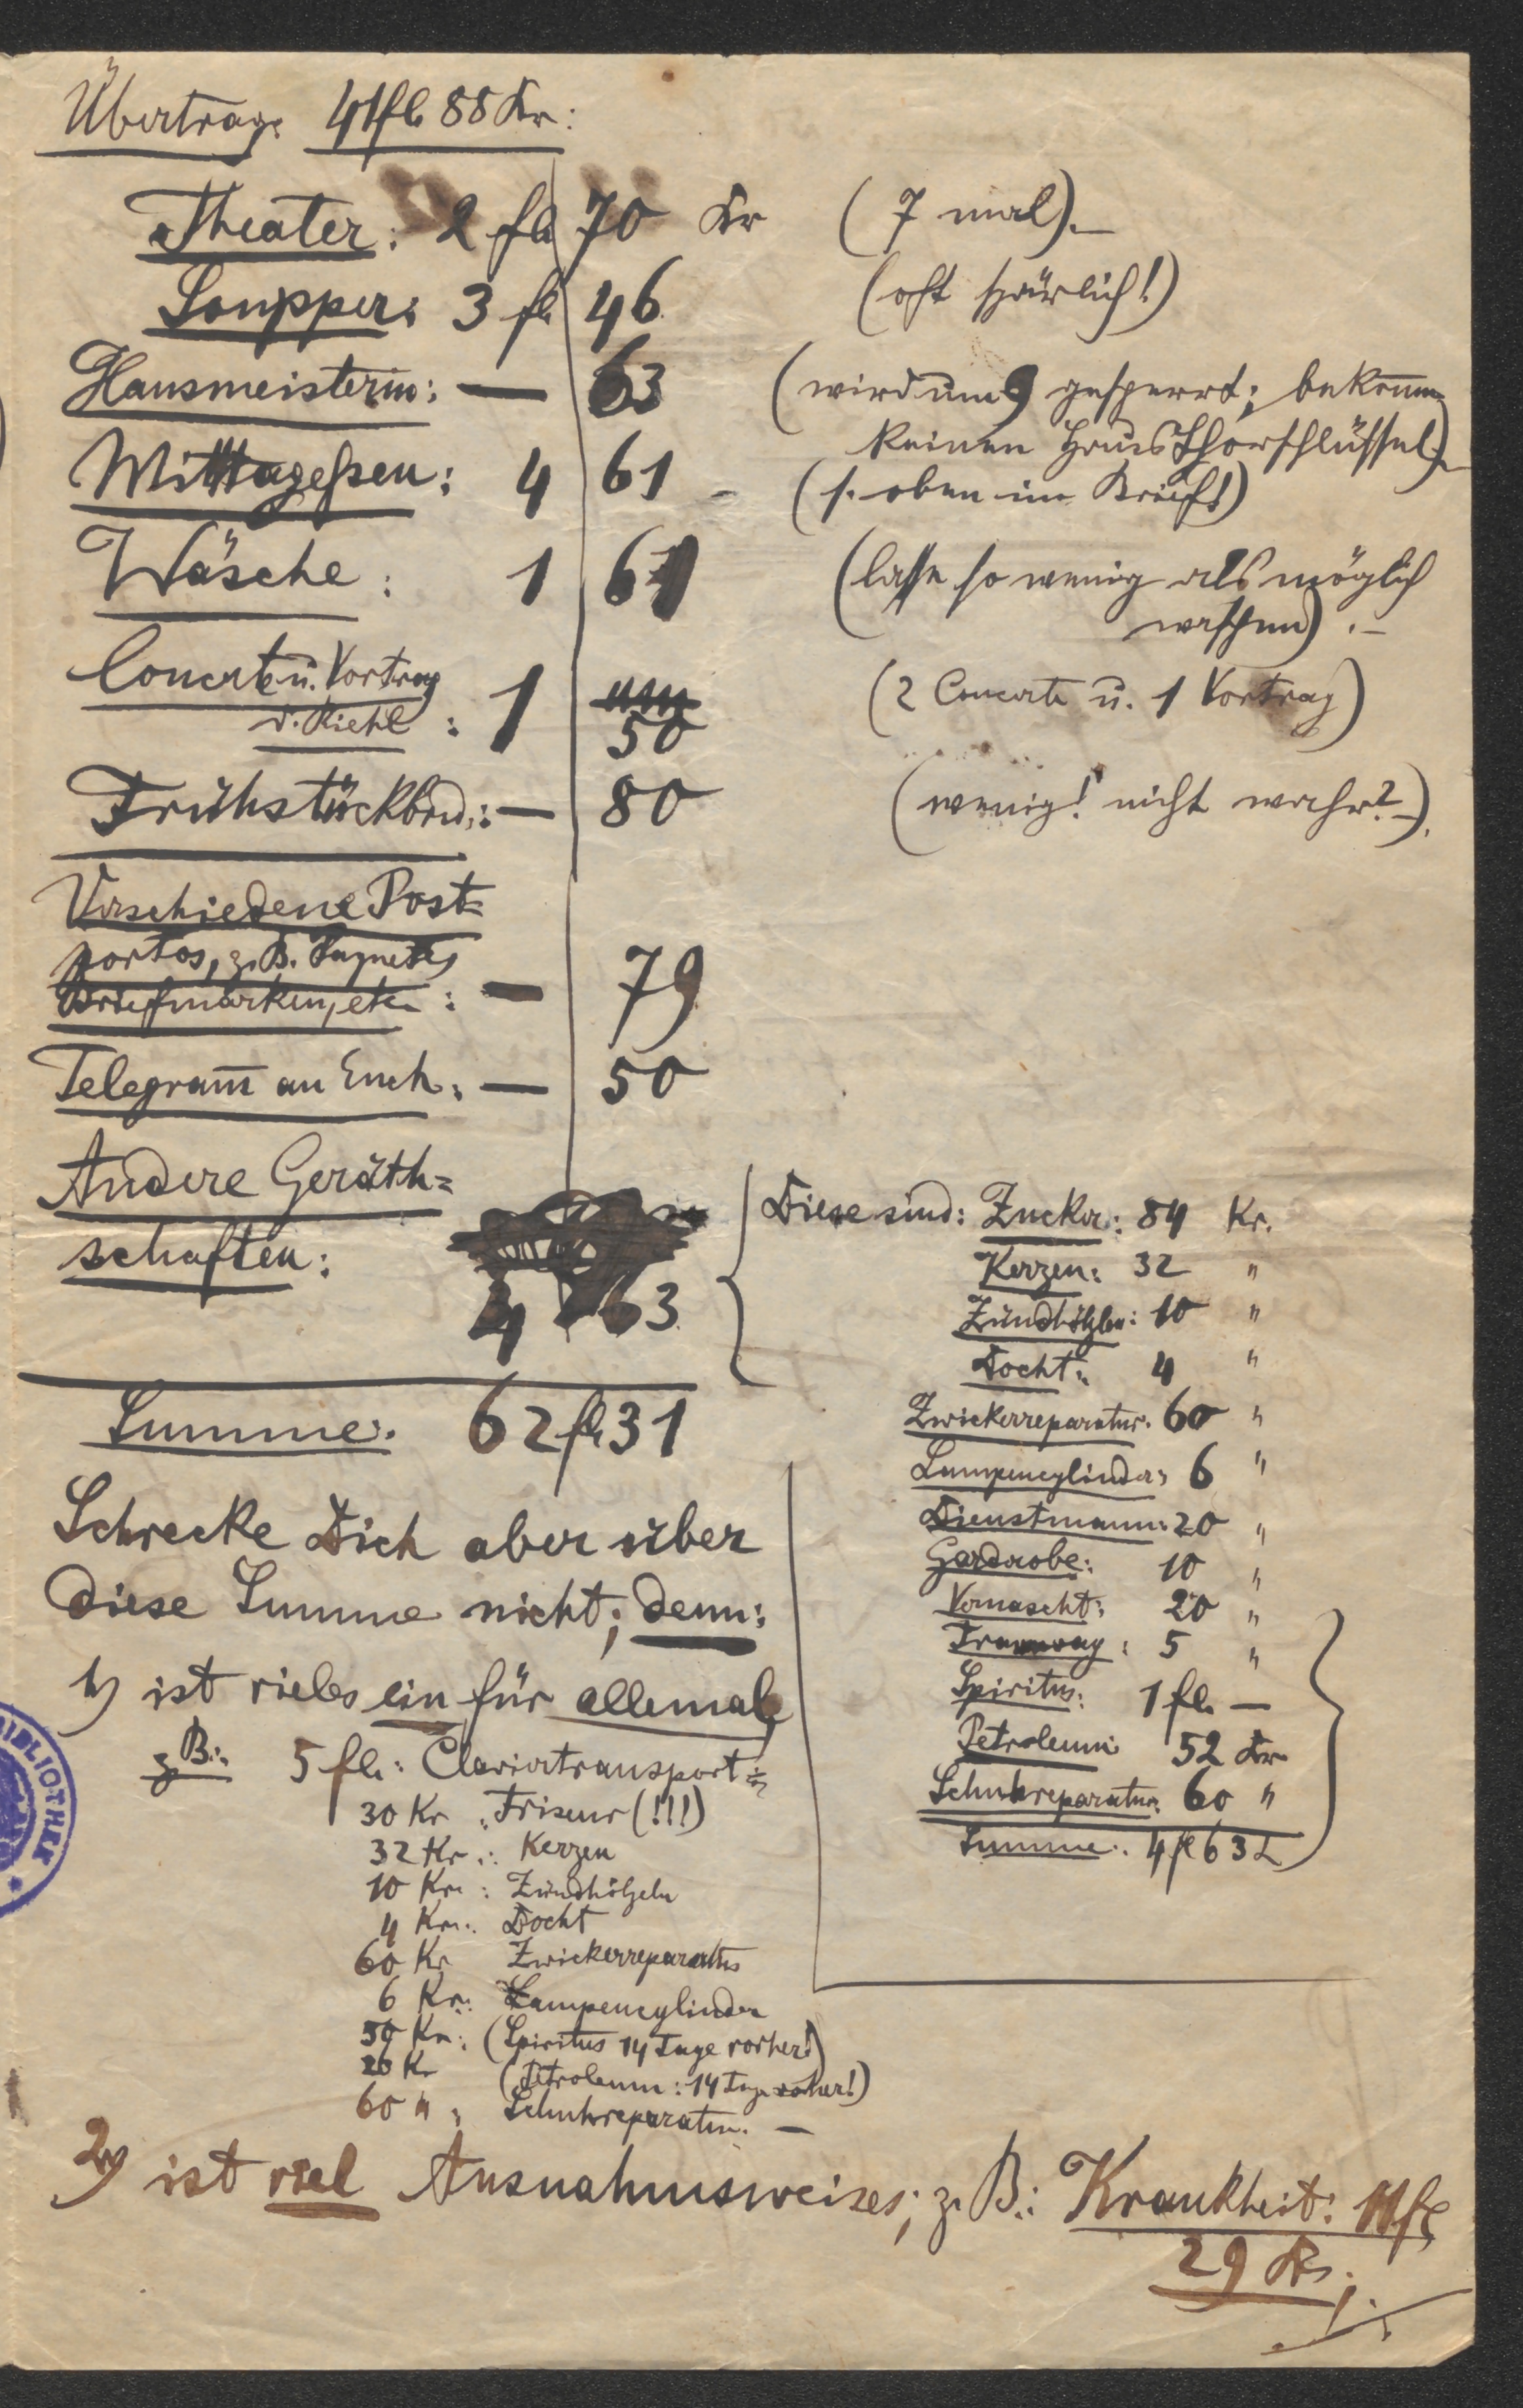 Übertrag: 41fl. 88 Kr:
Theater: 2 fl. 70 Kr (7 mal).—
Soupper: 3 fl. 46 (oft spärlich!)
Hausmeisterin: — 63 (wird um 9 gesperrt; bekomme
keinen HausThorschlüssel).—
Mittagessen: 4 61 – (s. oben im Brief!)
Wäsche: 1 61 (lasse so wenig als möglich
waschen).—
Concerte u. Vortrag
v. Riehl: 1 50 (2 Concerte u. 1 Vortrag)
Frühstückbrod: — 80 (wenig! nicht wahr?—).
Verschiedene Post=
portos, z. B.
Briefmarken, etc: — 79
Telegram̄ an Euch: — 50
Andere Geräth=
schaften:
4 63
Summe: 62 fl. 31
Diese sind: Zucker: 84 Kr.
Kerzen: 32 "
Zündhölzln: 10 "
Docht: 4 "
Zwickerreparatur: 60 "
Lampencylinder: 6 "
Dienstmann: 20 "
Garderobe: 10 "
Vernascht: 20 "
Tramway: 5 "
Spiritus: 1 fl. —
Petroleum: 52 Kr.
Schuhreparatur: 60 "
Summe: 4 fl 63
Schrecke Dich aber über
diese Summe nicht; denn:
1) ist vieles ein für allemal,
z. B.: 5 fl.: Claviertransport
30 Kr: Friseur (!!!)
32 Kr.: Kerzen
10 Kr.: Zündhölzeln
4 Kr.: Docht
60 Kr Zwickerreparatur
6 Kr: Lampencylinder
50 Kr: (Spiritus 14 Tage vorher!)
20 Kr (Petroleum: 14 Tage vorher!)
60 ": Schuhreparatur. —
2) ist viel Ausnahmsweises; z. B.: Krankheit: 11 fl
29 Kr.
BIBLIOTHEK